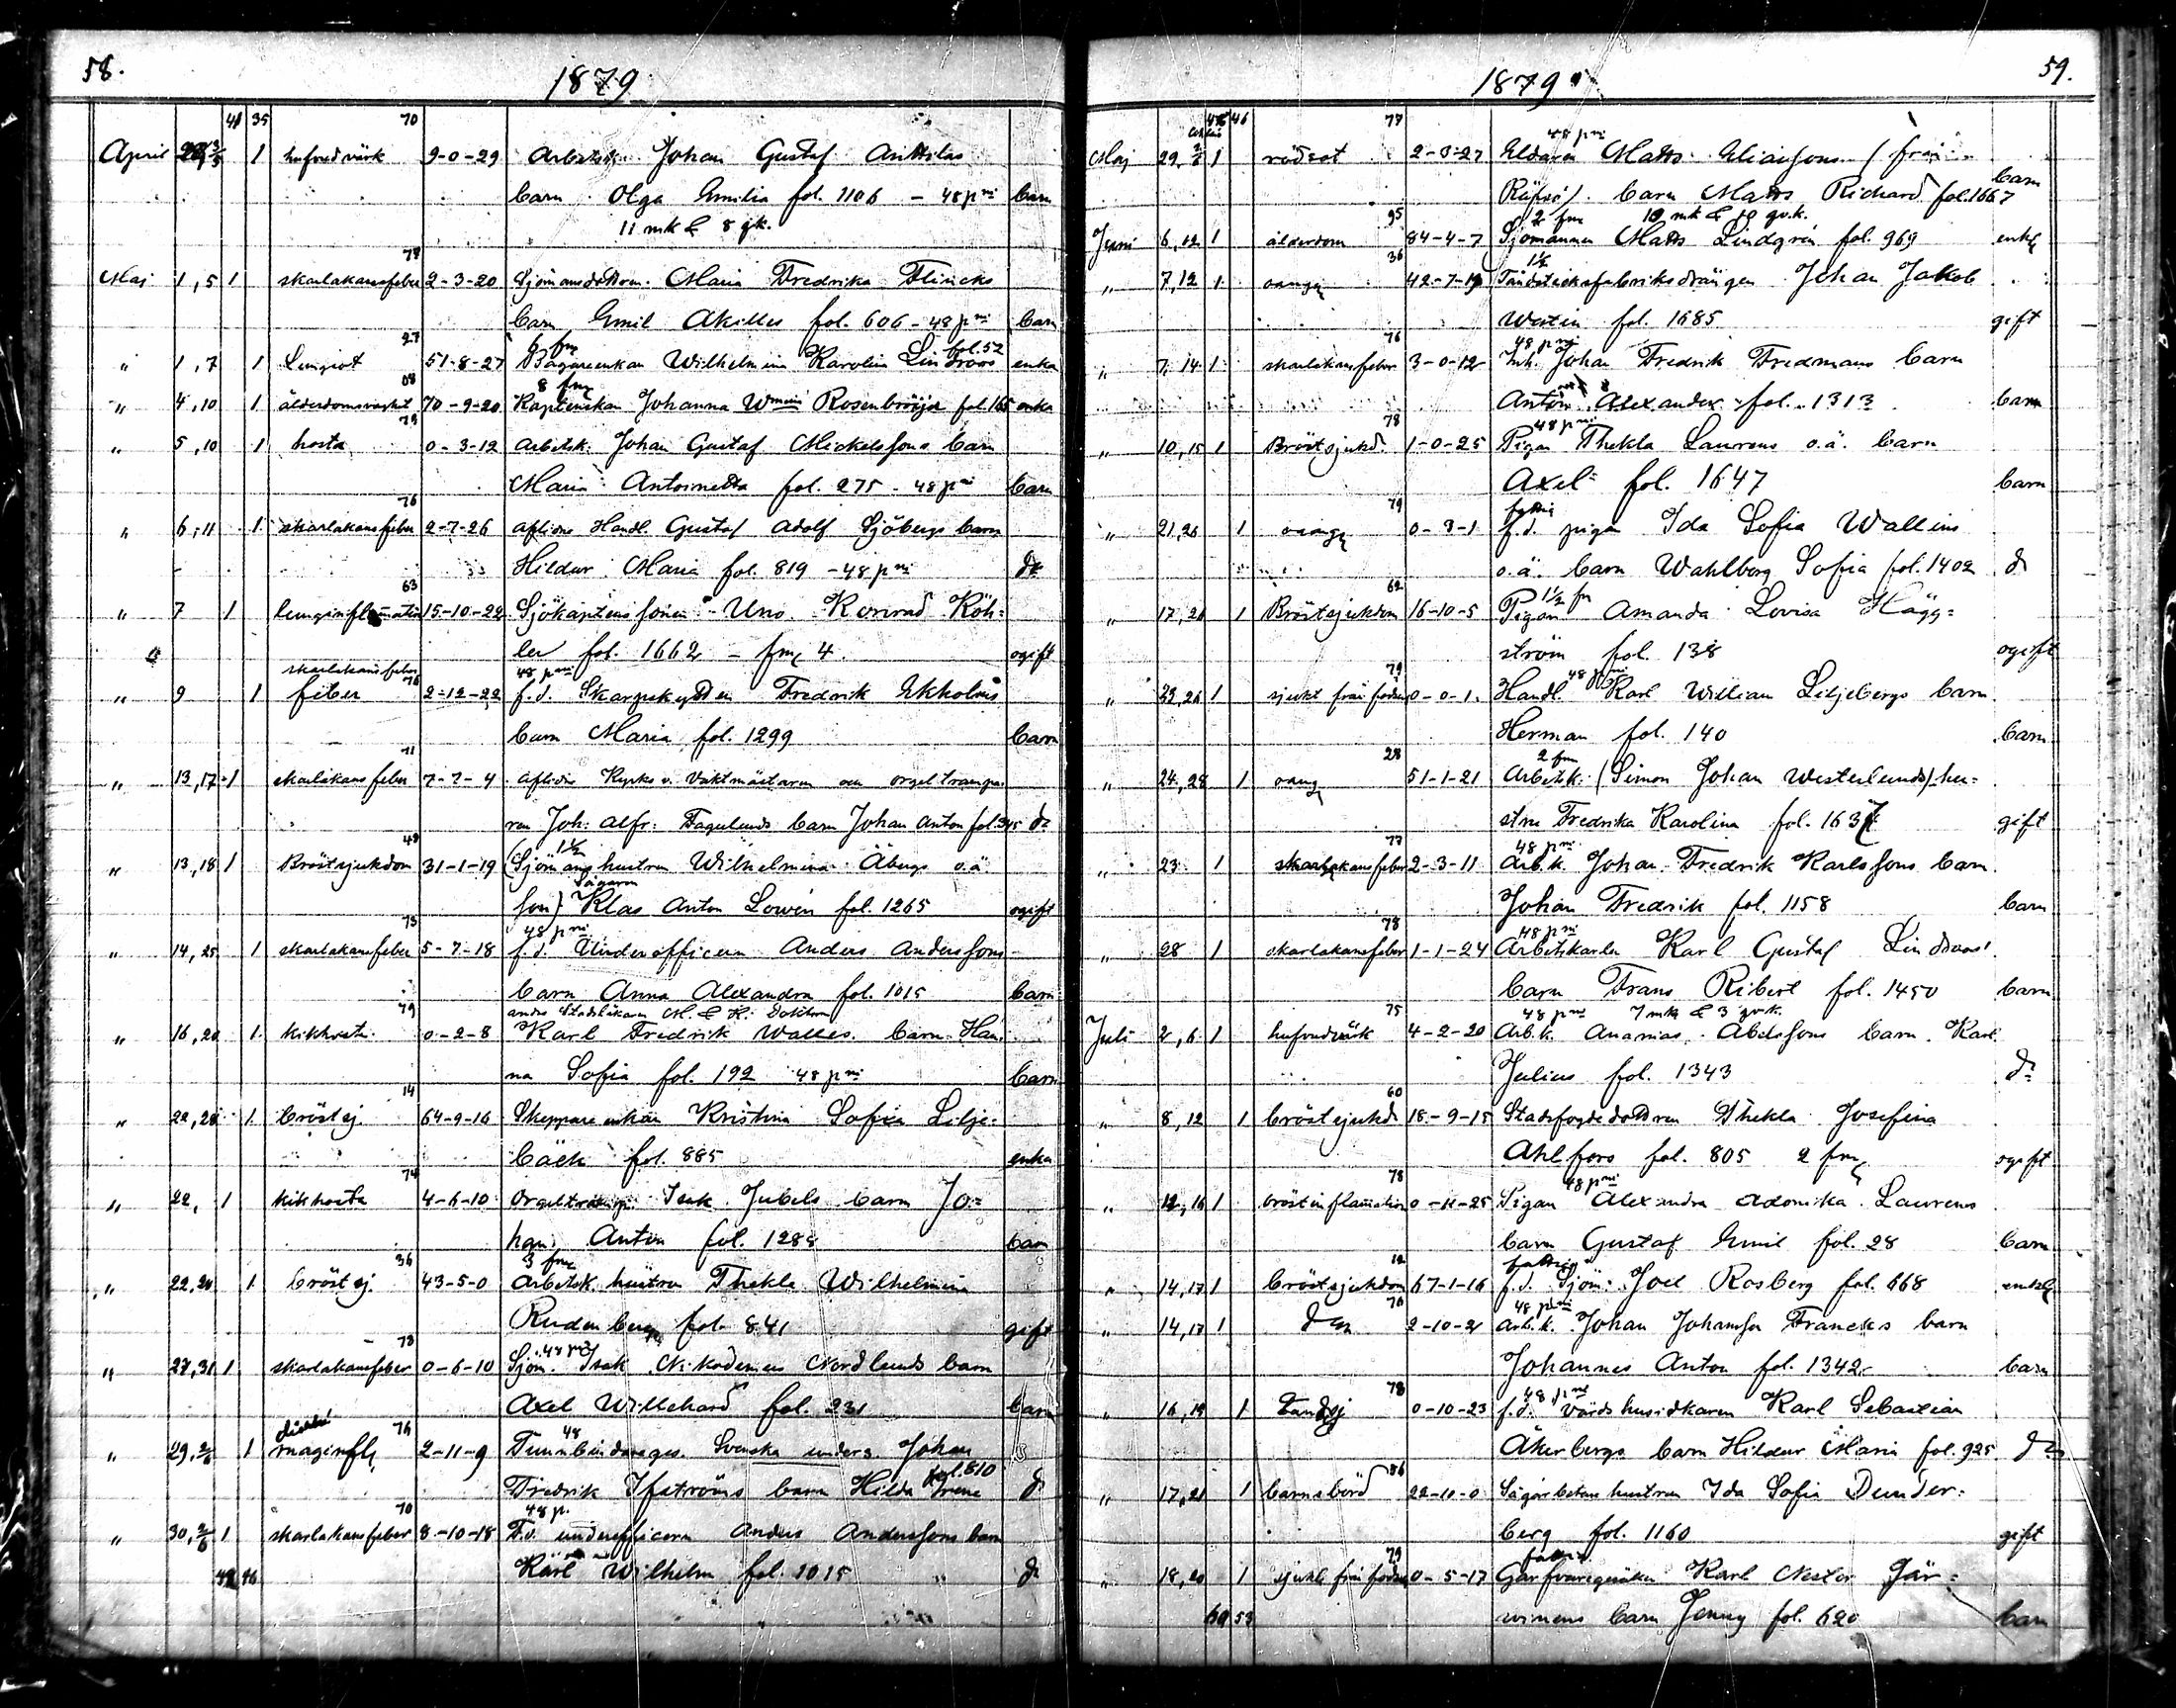 58.
1879
41 35 70
April 29, 3/5 1 hufvudvärk 9-0-29 Arbetsk. Johan Gustaf Anttilas
barn Olga Emilia fol. 1106 - 48 pni barn
11 mk & 8 gk.
77
Maj 1, 5 1 skarlakansfeber 2-3-20 Sjömansdottren Maria Fredrika Flincks
barn Emil Akilles fol. 606 - 48 pni barn
27 6 fmk fol. 52
" 1, 7 1 Lungsot 51-8-27 Bagareenkan Wilhelmina Karolin Lindroos enka
08 8 fmk
" 4, 10 1 70-9-20 Kaptenskan Johanna Wmina Rosenbröijer fol. 165 enka
79
" 5, 10 1 hosta 0-3-12 Arbetsk. Johan Gustaf Mickelssons barn
Maria Antoinetta fol. 275 - 48 pni barn
76
" 6, 11 1 skarlakansfeber 2-7-26 aflidne Handl. Gustaf Adolf Sjöbergs barn
Hildur Maria fol. 819 - 48 pni do
63
" 7 1 lunginflamation 15-10-22 Sjökaptens sonen Uno Konrad Köh=
ler fol. 1662 - fmk 4. ogift
skarlakansfeber 76 48 pni
" 9 1 feber 2-12-22 f.d. Skarpskytten Fredrik Ekholms
barn Maria fol. 1299 barn
71
" 13, 17 1 skarlakansfeber 7-7-4 aflidne Kyrko v. Vaktmästaren och orgeltrampa
ren Joh: Alfr: Fagerlunds barn Johan Anton fol. 345 do
48 1½
" 13, 18 1 Bröstsjukdom 31-1-19 (Sjömans hustrun Wilhelmina Åbergs o.ä.
Sågaren
son) Klas Anton Lowén fol. 1265 ogift
73 48 pni
" 14, 25 1 skarlakansfeber 5-7-18 f.d. Underofficern Anders Anderssons
barn Anna Alexandra fol. 1015 barn
79 andre Stadsläkaren M. & K. Doktorn
" 16, 20 1 kikhosta 0-2-8 Karl Fredrik Walles barn Han
na Sofia fol. 192 48 pni barn
14
" 22, 28 1 bröstsj. 64-9-16 Skeppare enkan Kristina Sofia Lilje=
bäck fol. 885 enka
74
" 22, 1 kikhosta 4-6-10 Orgeltramp: Isak Jubels barn Jo=
han Anton fol. 1288 barn
36 3 fmk
" 22, 24 1 bröstsj. 43-5-0 Arbetsk. hustrun Thekla Wilhelmina
Rudenberg fol. 841 gift
78 48 pni
" 27, 31 1 skarlakansfeber 0-6-10 Sjöm. Isak Nikodemus Nordlunds barn
Axel Willehard fol. 231 barn
76 48
" 29, 2/6 1 maginfl. 2-11-9 Tunnbindareges. Svenska unders. Johan
fol. 810
Fredrik Ifströms barn Hilda Irene do
70 48 p.
" 30, 2/6 1 skarlakansfeber 8-10-18 F.d. underofficern Anders Anderssons barn
Karl Wilhelm fol. 1015 do
49 46
1879
59.
46 77 48 pni
Maj 29, 2/6 1 rödsot 2-3-27 Eldaren Matts Eliassons (från
Räfsö) barn Matts Richard fol. 1667 barn
95 2 fmk 10 mk & 10 gvk.
Juni 6, 12 1 ålderdom 84-4-7 Sjömannen Matts Lindgrén fol. 969 enkl
36 1½
" 7, 12 1 42-7-19 Tändsticksfabriksdrängen Johan Jakob
Westin fol. 1685 gift
76 48 pni
" 7, 14 1 skarlakansfeber 3-0-12 Inh. Johan Fredrik Fredmans barn
Anton Alexander fol. 1313 barn
78 48 pni
" 10, 15 1 Bröstsjukd. 1-0-25 Pigan Thekla Laurens o.ä. barn
Axel fol. 1647 barn
79 fattig
" 21, 26 1 0-3-1 f.d. pigan Ida Sofia Wallins
o.ä. barn Wahlborg Sofia fol. 1402 do
62 1½ fm
" 17, 21 1 Bröstsjukdom 16-10-5 Pigan Amanda Lovisa Hägg=
ström fol. 138 ogift
79 48 pni
" 23, 26 1 sjukl från födsel 0-0-1 Handl. Karl William Liljebergs barn
Herman fol. 140 barn
28 2 fmk
" 24, 28 1 51-1-21 Arbetsk. (Simon Johan Westerlunds) hu=
strun Fredrika Karolina fol. 1637 gift
77 48 pni
" 23 1 skarlakansfeber 2-3-11 Arb.k. Johan Fredrik Karlssons barn
Johan Fredrik fol. 1158 barn
78 48 pni
" 28 1 skarlakansfeber 1-1-24 Arbetskarlen Karl Gustaf Lindroos'
barn Frans Ribert fol. 1450 barn
75 48 pni 7 mk & 3 gvk.
Juli 2, 6 1 hufvudvärk 4-2-20 Arb.k. Ananias Abelssons barn Karl
Julius fol. 1343 do
60
" 8, 12 1 bröstsjukd. 18-9-15 Stadsfogdedottren Thekla Josefina
Ahlfors fol. 805 2 fmk ogift
78 48 pni
" 12, 16 1 bröstinflamation 0-11-25 Pigan Alexandra Adomika Laurens
barn Gustaf Emil fol. 28 barn
12 fattig
" 14, 17 1 bröstsjukdom 67-1-16 f.d. Sjöm: Joel Rosberg fol. 668 enkl
76 48 pni
" 14, 17 1 do 2-10-21 Arb.k. Johan Johansson Francks barn
Johannes Anton fol. 1342 barn
78 48 pni
" 16, 19 1 Tandsj 0-10-23 f.d. Värdshusidkaren Karl Sebastian
Åkerbergs barn Hildur Maria fol. 925 do
56
" 17, 21 1 barnsbörd 22-10-0 Sågarbetarehustrun Ida Sofia Dunder=
berg fol. 1160 gift
79 fattig
" 18, 20 1 sjukl. från födsel 0-5-17 Garfvaregesällen Karl Nestor Jär=
winens barn Jenny fol. 620 barn
60 53